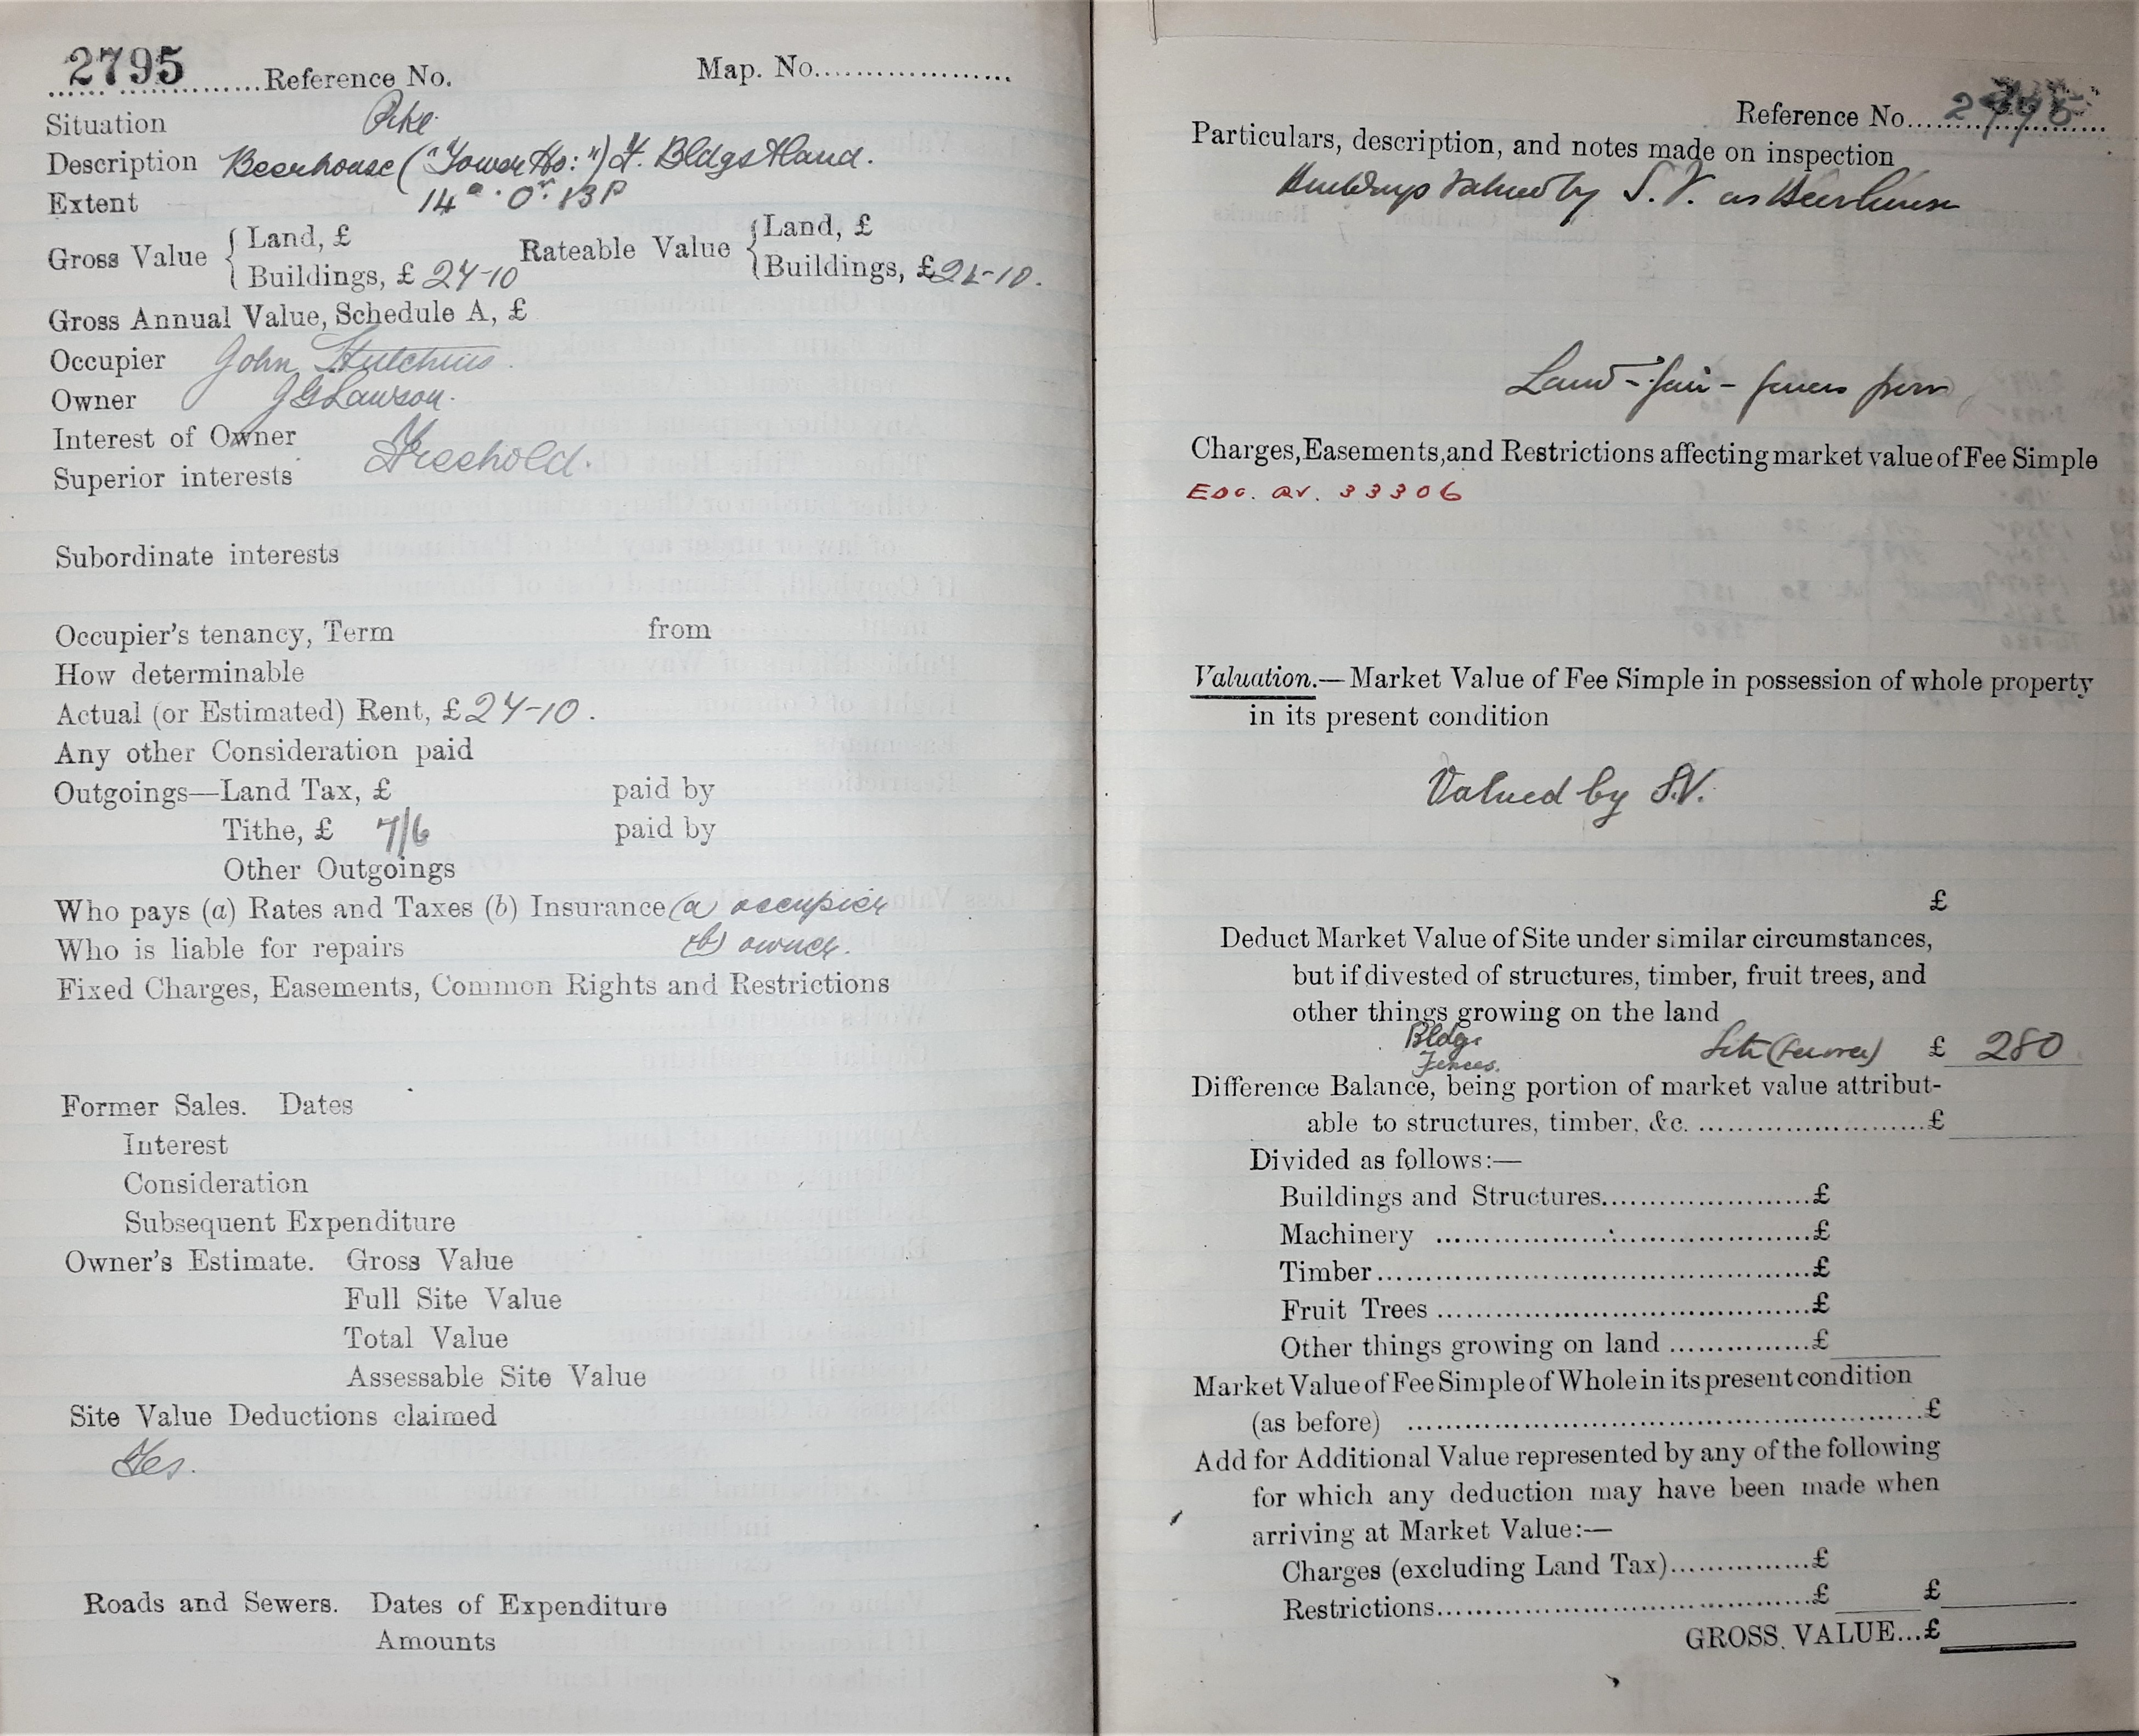 2795 Reference No. Map. No.
Situation Pike
Description Beerhouse ("Tower Ho:") F. Bldgs & land.
Extent 14a. 0r. 13P
Gross Value { Land, £ Rateable Value { Land, £
Buildings, £ 24-10 Buildings, £
Gross Annual Value, Schedule A, £
Occupier John Hutchins.
Owner J G Lawson.
Interest of Owner
Superior interests Freehold.
Subordinate interests
Occupier's tenancy, Term from
How determinable
Actual (or Estimated) Rent, £ 24-10.
Any other Consideration paid
Outgoings—Land Tax, £ paid by
Tithe, £ 7/6 paid by
Other Outgoings
Who pays (a) Rates and Taxes (b) Insurance (a) occupier
Who is liable for repairs (b) owner.
Fixed Charges, Easements, Common Rights and Restrictions
Former Sales. Dates
Interest
Consideration
Subsequent Expenditure
Owner's Estimate. Gross Value
Full Site Value
Total Value
Assessable Site Value
Site Value Deductions claimed
Yes.
Roads and Sewers. Dates of Expenditure
Amounts
Reference No. 2795
Particulars, description, and notes made on inspection
Buildings Valued by S.V. as Beerhouse
Land - fair - fences poor
Charges, Easements, and Restrictions affecting market value of Fee Simple
33306
Valuation.—Market Value of Fee Simple in possession of whole property
in its present condition
Valued by S.V.
£
Deduct Market Value of Site under similar circumstances,
but if divested of structures, timber, fruit trees, and
other things growing on the land
Bldgs
Fences. Site £ 280
Difference Balance, being portion of market value attribut-
able to structures, timber, &c. £
Divided as follows:—
Buildings and Structures £
Machinery £
Timber £
Fruit Trees £
Other things growing on land £
Market Value of Fee Simple of Whole in its present condition
(as before) £
Add for Additional Value represented by any of the following
for which any deduction may have been made when
arriving at Market Value:—
Charges (excluding Land Tax) £
Restrictions £ £
GROSS VALUE...£